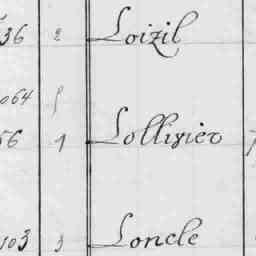 36 2 Loizil
064
56 1 Lollivier
103 3 Loncle